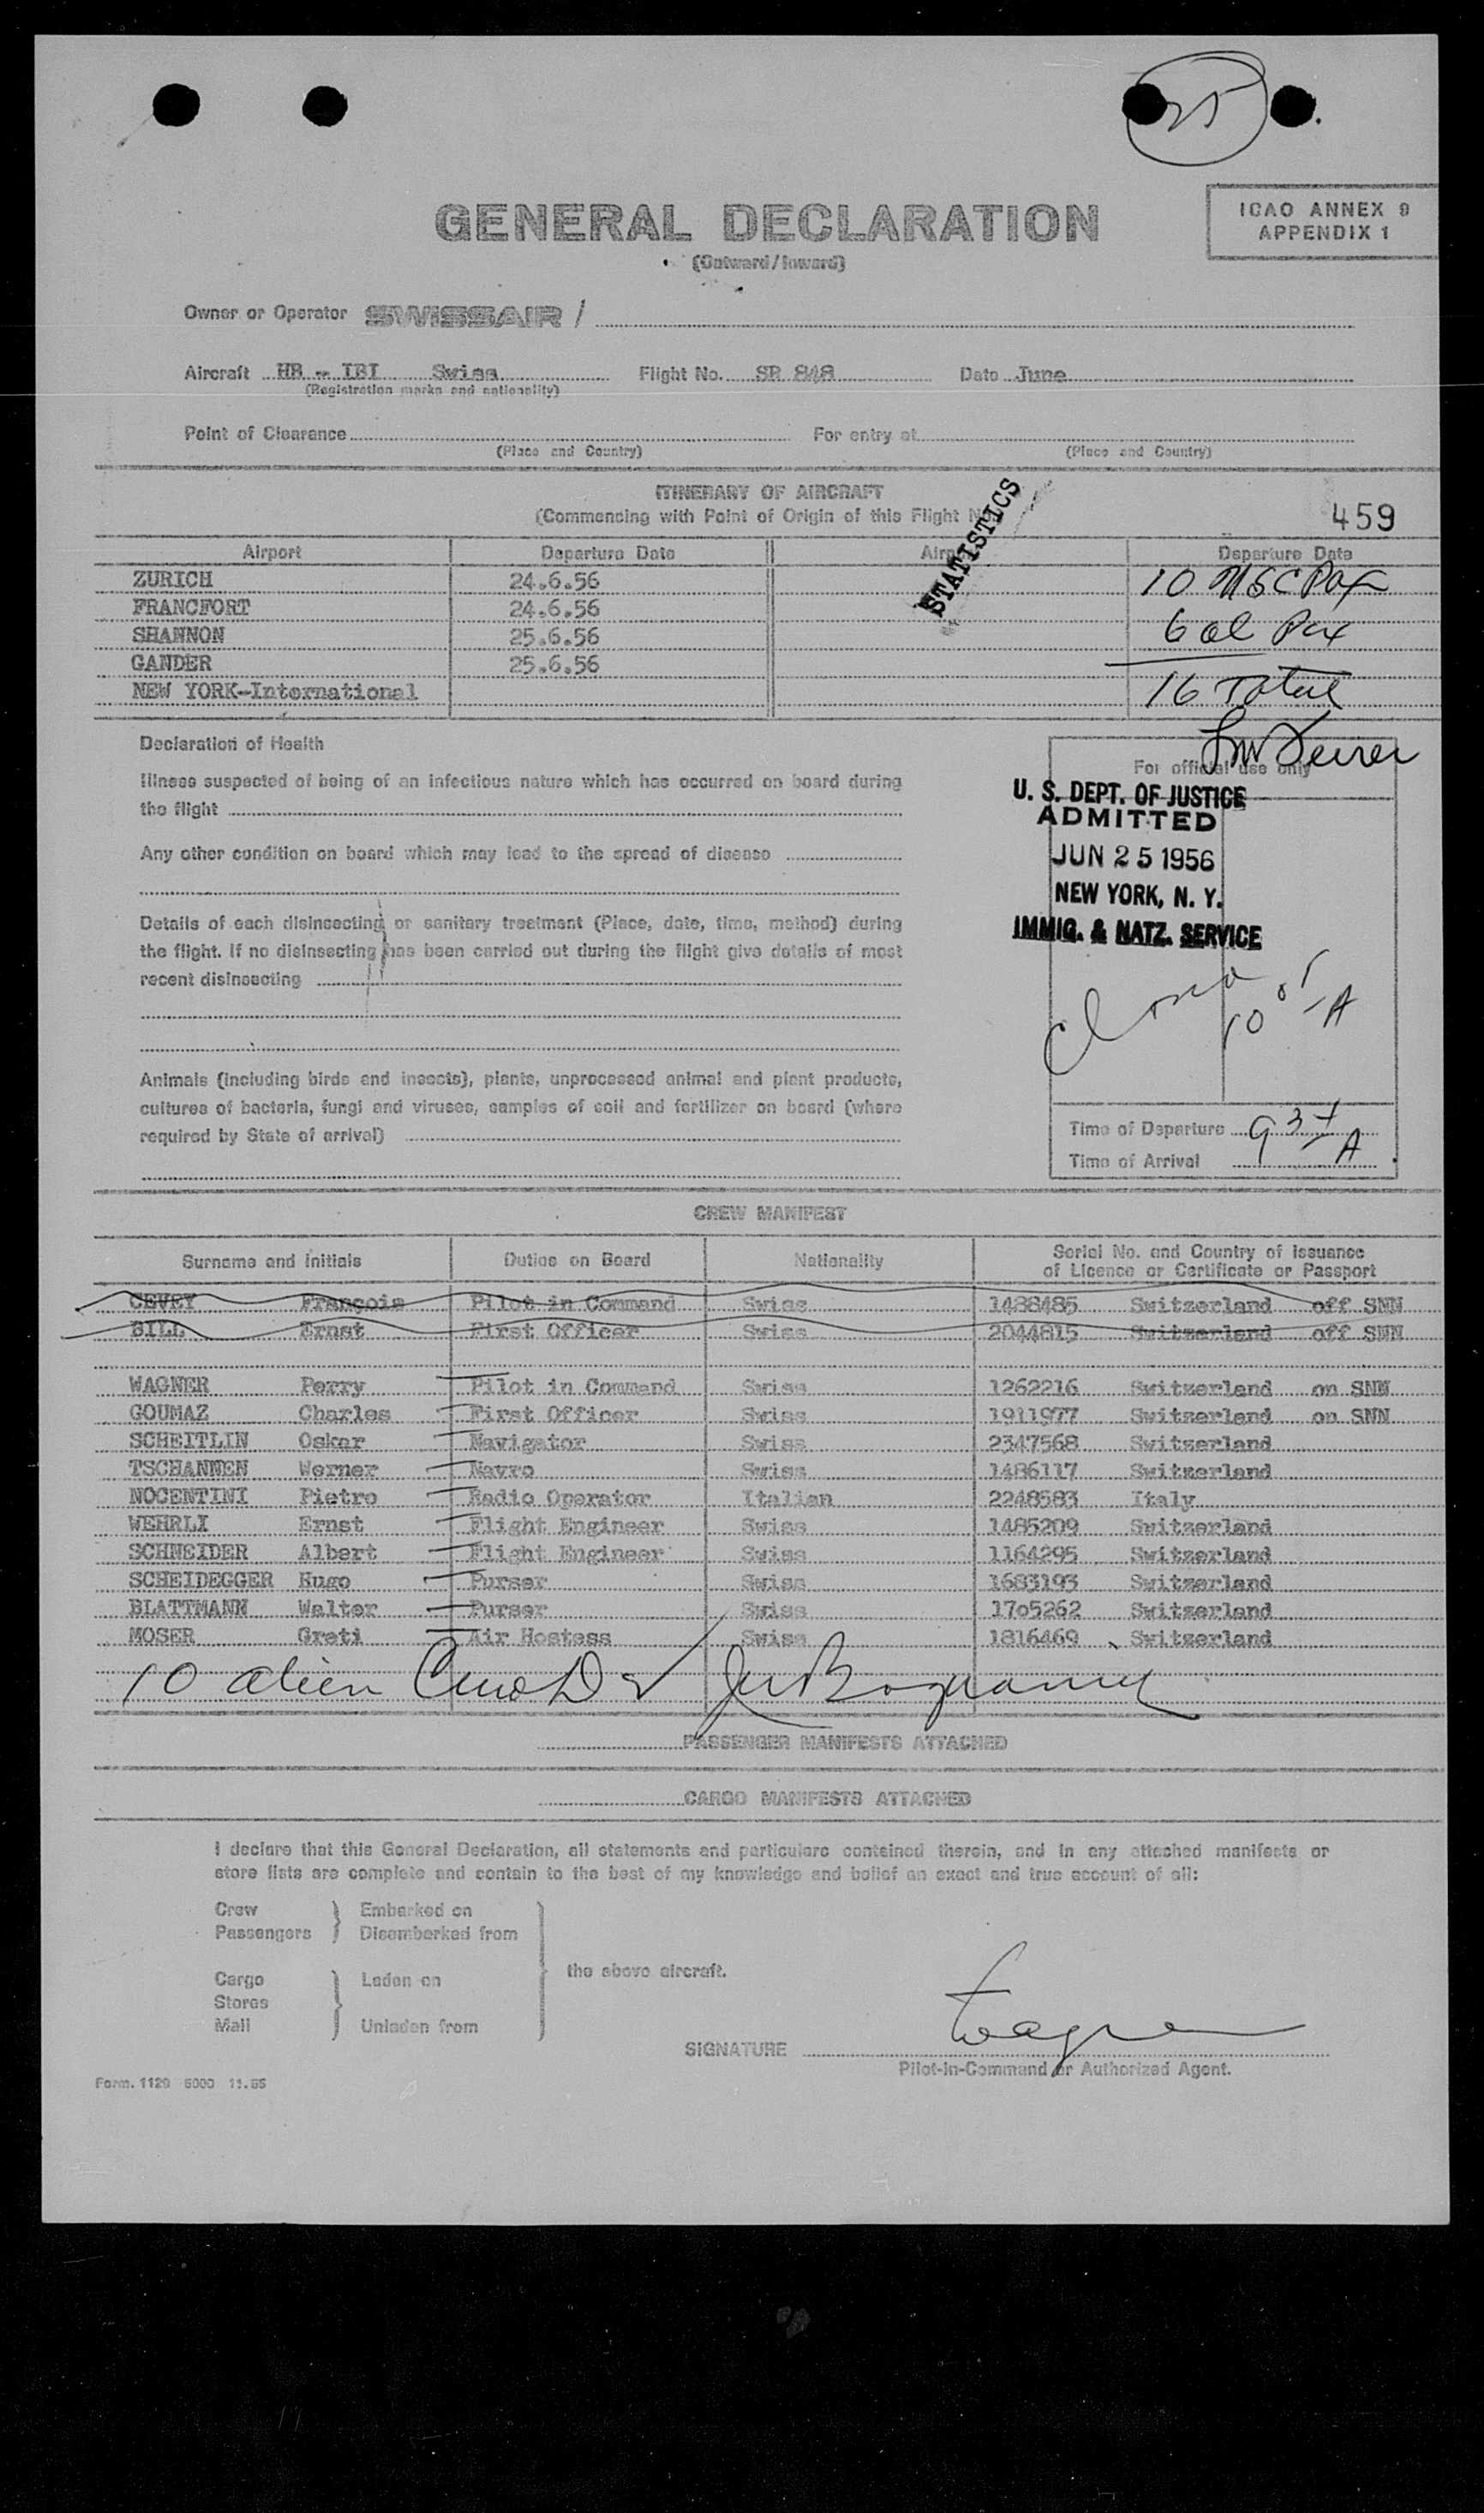 25
GENERAL DECLARATION
(Outward/Inward)
ICAO ANNEX 9
APPENDIX 1
Owner or Operator SWISSAIR /
Aircraft HB - IBI Swiss Flight No. SR 848 Date June
(Registration marks and nationality)
Point of Clearance For entry at
(Place and Country) (Place and Country)
ITINERARY OF AIRCRAFT
(Commencing with Point of Origin of this Flight
STATISTICS
459
Airport Departure Date Airport Departure Date
ZURICH 24.6.56 10 USC Pax
FRANCFORT 24.6.56
SHANNON 25.6.56 6 al Pax
GANDER 25.6.56
NEW YORK-International 16 Total
Declaration of Health
Illness suspected of being of an infectious nature which has occurred on board during
the flight
Any other condition on board which may lead to the spread of disease
Details of each disinsecting or sanitary treatment (Place, date, time, method) during
the flight. If no disinsecting has been carried out during the flight give details of most
recent disinsecting
Animals (including birds and insects), plants, unprocessed animal and plant products,
cultures of bacteria, fungi and viruses, samples of soil and fertilizer on board (where
required by State of arrival)
For official use only
U. S. DEPT. OF JUSTICE
ADMITTED
JUN 25 1956
NEW YORK, N. Y.
IMMIG. & NATZ. SERVICE
Time of Departure
Time of Arrival
CREW MANIFEST
Surname and Initials Duties on Board Nationality Serial No. and Country of Issuance
of Licence or Certificate or Passport
CEVEY François Pilot in Command Swiss 1488485 Switzerland off SNN
BILL Ernst First Officer Swiss 2044815 Switzerland off SNN
WAGNER Perry Pilot in Command Swiss 1262216 Switzerland on SNN
GOUMAZ Charles First Officer Swiss 1911977 Switzerland on SNN
SCHEITLIN Oskar Navigator Swiss 2347568 Switzerland
TSCHANNEN Werner Navro Swiss 1486117 Switzerland
NOCENTINI Pietro Radio Operator Italian 2248583 Italy
WEHRLI Ernst Flight Engineer Swiss 1485209 Switzerland
SCHNEIDER Albert Flight Engineer Swiss 1164295 Switzerland
SCHEIDEGGER Hugo Purser Swiss 1683193 Switzerland
BLATTMANN Walter Purser Swiss 17o5262 Switzerland
MOSER Greti Air Hostess Swiss 1816469 Switzerland
10 alien
PASSENGER MANIFESTS ATTACHED
CARGO MANIFESTS ATTACHED
I declare that this General Declaration, all statements and particulars contained therein, and in any attached manifests or
store lists are complete and contain to the best of my knowledge and belief an exact and true account of all:
Crew Embarked on
Passengers Disembarked from
the above aircraft.
Cargo Laden on
Stores
Mail Unladen from
SIGNATURE Wagner
Pilot-in-Command or Authorized Agent.
Form. 1120 6000 11.55